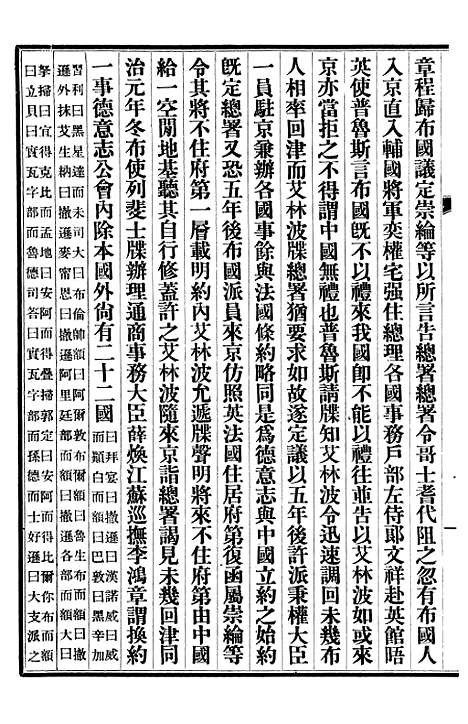 章程歸布國議定崇綸等以所言告總署總署令哥士耆代阻之忽有布國人
入京直入輔國將軍奕權宅强住總理各國事務戶部左侍郎文祥赴英館晤
英使普魯斯言布國既不以禮來我國卽不能以禮往並告以艾林波如或來
京亦當拒之不得謂中國無禮也普魯斯請牒知艾林波令迅速調回未幾布
人相率回津而艾林波牒總署猶要求如故遂定議以五年後許派秉權大臣
一員駐京兼辦各國事餘與法國條約略同是爲德意志與中國立約之始約
既定總署又恐五年後布國派員來京仿照英法國住居府第復函屬崇綸等
令其將不住府第一層載明約內艾林波允遞牒聲明將來不住府第由中國
給一空閒地基聽其自行修蓋許之艾林波隨來京詣總署謁見未幾回津同
治元年冬布使列斐士牒辦理通商事務大臣薛煥江蘇巡撫李鴻章謂換約
一事德意志公會內除本國外尚有二十二國
曰拜宴曰撒遜曰漢諾威曰威
而顛白而額曰巴敦曰黑辛加
習利曰黑星達而未司大曰布倫帥額曰阿爾敦布爾額曰魯生布而額曰
撒遜外抹艾生納曰撒遜麥甯恩曰撒遜阿里廷部而額曰撒遜各部而額大曰
拏掃曰宜得克比而孟地曰安阿而得疊掃郭定曰安阿而比爾你布而額
曰立貝曰實瓦字部而魯德司答曰實瓦字部而孫德而士好遜曰大支派之